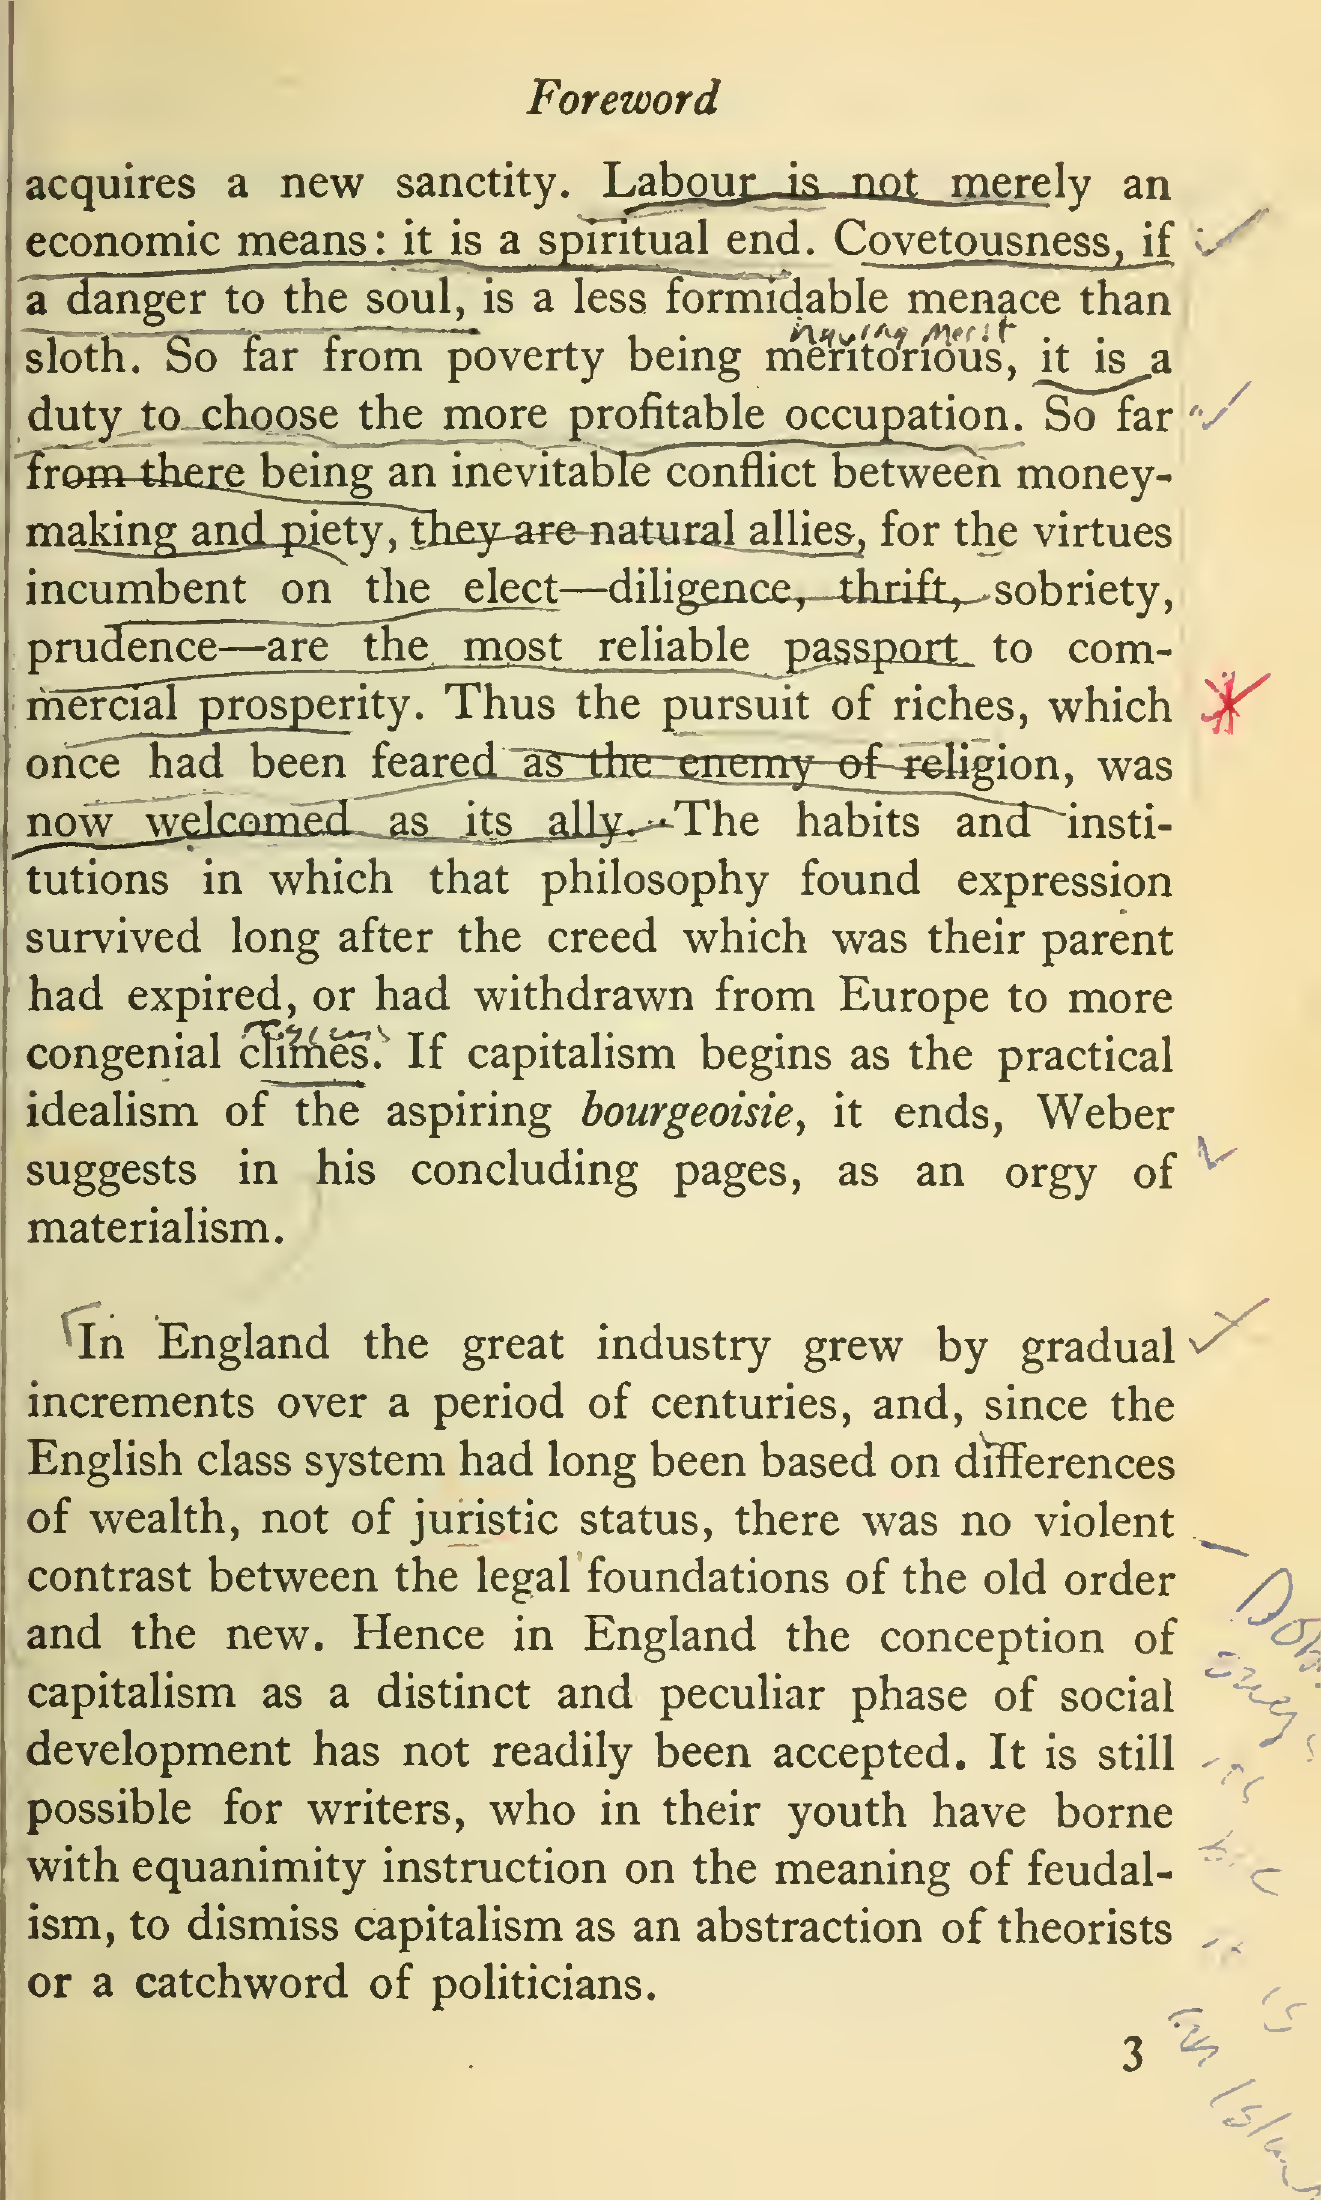 Foreword
acquires a new sanctity. Labour is not merely an
economic means: it is a spiritual end. Covetousness, if
a danger to the soul, is a less formidable menace than
having merit
sloth. So far from poverty being meritorious, it is a
duty to choose the more profitable occupation. So far
from there being an inevitable conflict between money-
making and piety, they are natural allies, for the virtues
incumbent on the elect—diligence, thrift, sobriety,
prudence—are the most reliable passport to com-
mercial prosperity. Thus the pursuit of riches, which
once had been feared as the enemy of religion, was
now welcomed as its ally. The habits and insti-
tutions in which that philosophy found expression
survived long after the creed which was their parent
had expired, or had withdrawn from Europe to more
congenial climes. If capitalism begins as the practical
idealism of the aspiring bourgeoisie, it ends, Weber
suggests in his concluding pages, as an orgy of
materialism.
In England the great industry grew by gradual
increments over a period of centuries, and, since the
English class system had long been based on differences
of wealth, not of juristic status, there was no violent
contrast between the legal foundations of the old order
and the new. Hence in England the conception of
capitalism as a distinct and peculiar phase of social
development has not readily been accepted. It is still
possible for writers, who in their youth have borne
with equanimity instruction on the meaning of feudal-
ism, to dismiss capitalism as an abstraction of theorists
or a catchword of politicians.
3